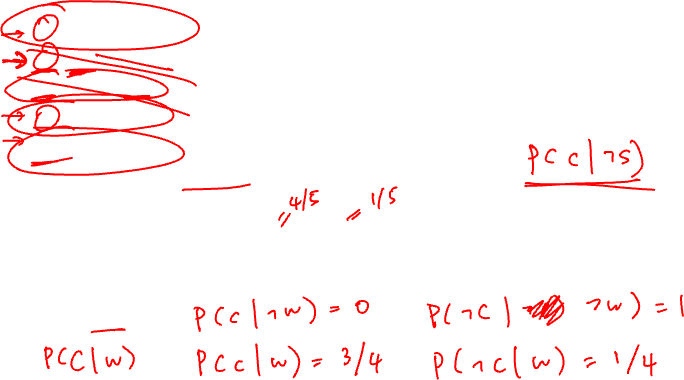 P(C|¬S)
=4/5 =1/5
P(C|¬W) = 0 P(¬C| ¬W) = 1
P(C|W) P(C|W) = 3/4 P(¬C|W) = 1/4